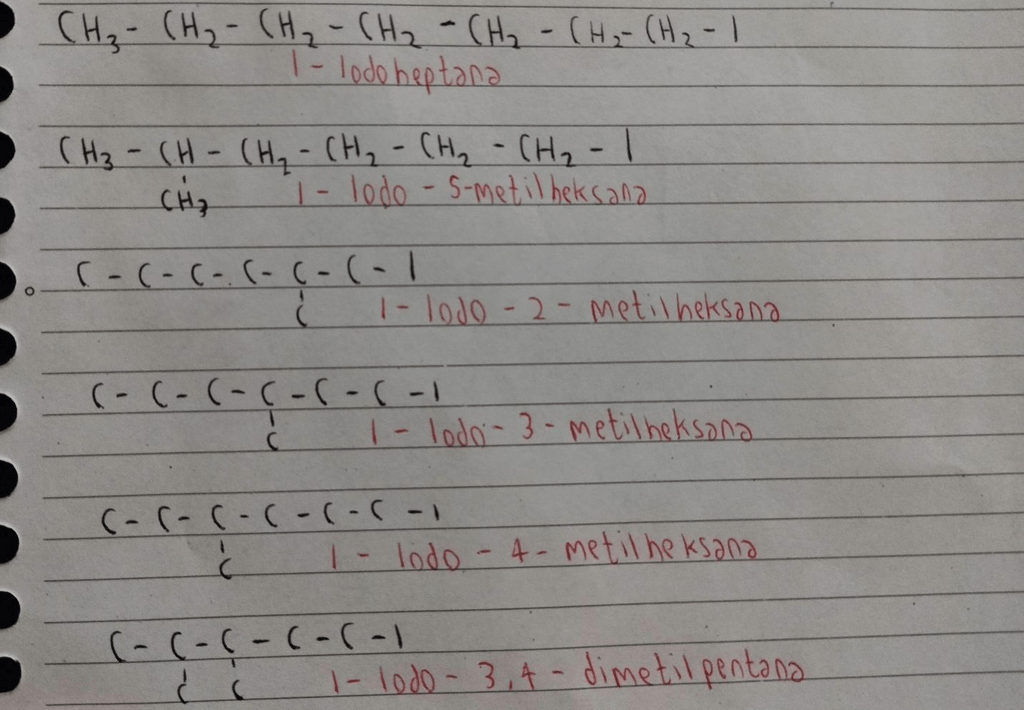 CH3 - CH2 - CH2 - CH2 - CH2 - CH2 - CH2 - I
1 - Iodoheptana
CH3 - CH - CH2 - CH2 - CH2 - CH2 - I
CH3
1 - Iodo - 5-metilheksana
C - C - C - C - C - C - I
C
1 - Iodo - 2 - metilheksana
C - C - C - C - C - C - I
C
1 - Iodo - 3 - metilheksana
C - C - C - C - C - C - I
C
1 - Iodo - 4 - metilheksana
C - C - C - C - C - I
C C
1 - Iodo - 3,4 - dimetilpentana